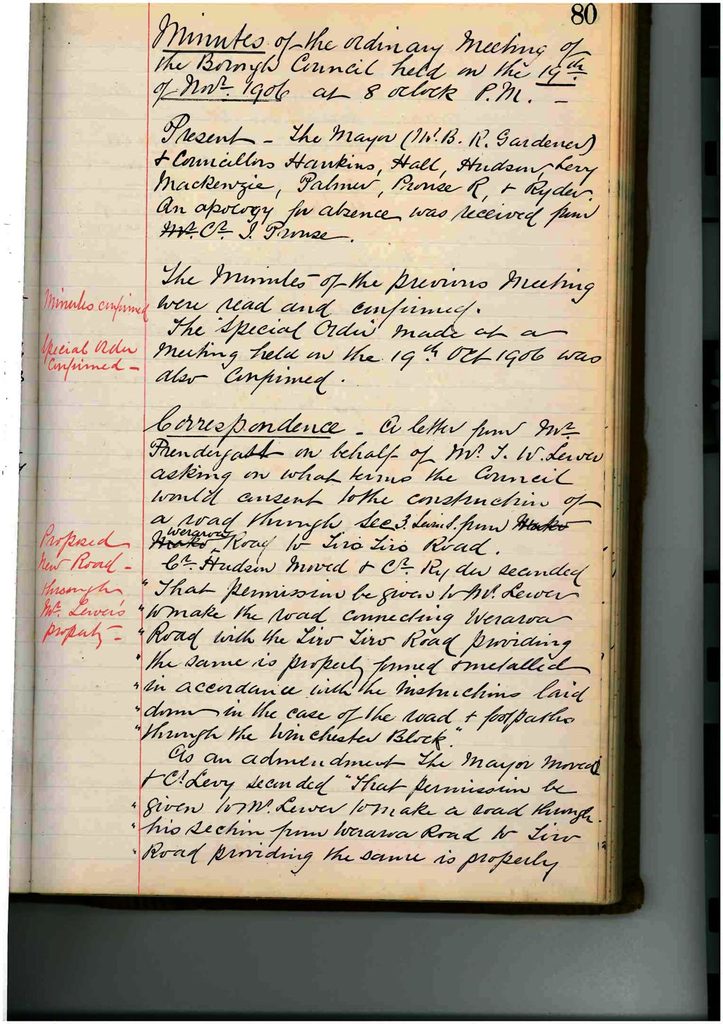 80
Minutes of the ordinary Meeting of
the Borough Council held on the 19th
of Novr. 1906 at 8 oclock P.M. –
Present – The Mayor (Mr. B. R. Gardener)
& Councillors Hankins, Hall, Hudson, Levy
Mackenzie, Palmer, Prouse R, & Ryder.
An apology for absence was received from
Mr. Cr. J. Prouse.
Minutes confirmed
The Minutes of the previous Meeting
were read and confirmed.
Special Order
Confirmed –
The Special Order made at a
Meeting held on the 19th Oct 1906 was
also Confirmed.
Correspondence – A letter from Mr.
Prendergast on behalf of Mr. J. W. Lewer
asking on what terms the Council
would consent to the construction of
a road through Sec 3. from Mako
Mako Weraroa Road to Tiro Tiro Road.
Proposed
New Road –
through
Mr. Lewer's
property –
Cr. Hudson Moved & Cr. Ryder seconded
"That permission be given to Mr. Lewer
"to make the road connecting Weraroa
"Road with the Tiro Tiro Road providing
"the same is properly formed & metalled
"in accordance with the Instructions laid
"down in the case of the road & footpaths
"through the Winchester Block."
As an admendment The Mayor Moved
& Cr. Levy seconded "That permission be
"given to Mr. Lewer to make a road through
"his section from Weraroa Road to Tiro
"Road providing the same is properly